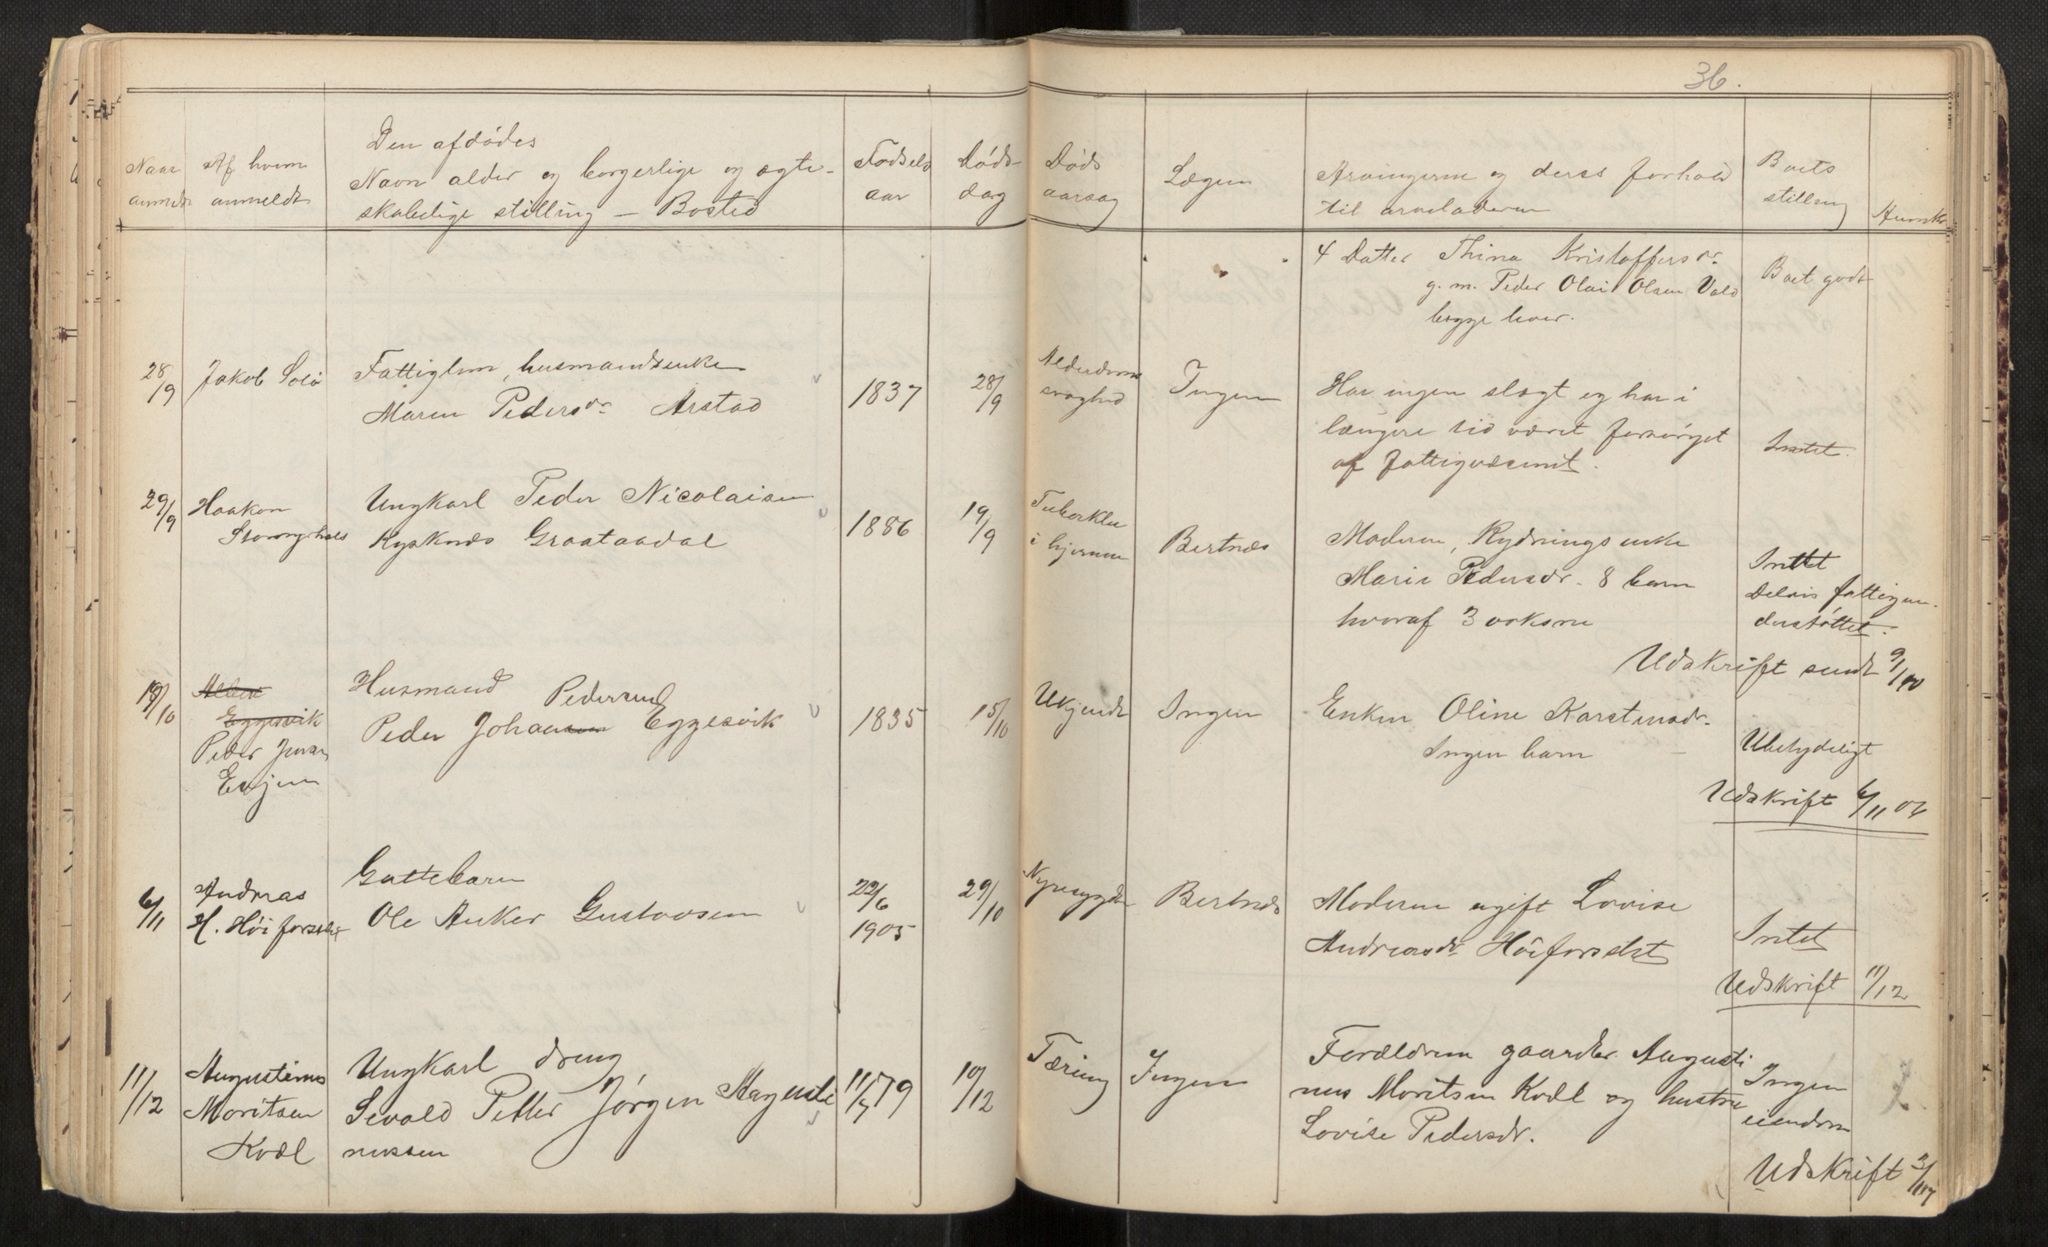 36.
Naar anmeldt
Af hvem anmeldt
Den afdødes
Navn alder og borgerlige og ægte-
skabelige stilling — Bosted
Fødsels
aar
Døds-
dag
Døds
aarsag
Lægen
Arvingerne og deres forhold
til arveladeren
Boets
stilling
4 Datter Thina Kristoffersdr.
g. m. Peder Olai Olsen Vold
begge lever.
Boet godt
28/9
Jakob Solø
Fattiglem, husmandsenke
Maren Pedersdr Arstad
1837
28/9
Alderdoms
svaghed
Ingen
Har ingen slægt og har i
længere tid været forsørget
af fattigvæsenet.
Intet.
29/9
Haakon
Ungkarl Peder Nicolaisen
Kysknæs Graataadal
1886
19/9
Tuberkler
i hjernen
Bertnæs
Moderen, Rydningsenke
Marie Pedersdr. 8 barn
hvoraf 3 voksne
Intet
Delvis fattigun-
derstøttet.
Udskrift sendt 9/10
18/10
Albert
Eggesvik
Peder Jensen
Evjen
Husmand
Pedersen
Peder Johansen Eggesvik
1835
15/10
Ukjendt
Ingen
Enken Oline Karstensdr.
Ingen barn
Ubetydeligt
Udskrift 6/11 06
6/11
Andreas
H. Høiforslet
Guttebarn
Ole Anker Gustavsen
22/6
1905
29/10
Nyresygdom
Bertnæs
Moderen ugift Lovise
Andreasdr Høiforslet
Intet
Udskrift 11/12
11/12
Augustinus
Moritsen
Kvæl
Ungkarl dreng
Sevald Petter Jørgen Augusti
nussen
11/7 79
10/12
Tæring
Ingen
Forældrene gaardbr. Augusti
nus Moritsen Kvæl og hustru
Lovise Pedersdr.
Ingen
eiendom
Udskrift 2/1 07